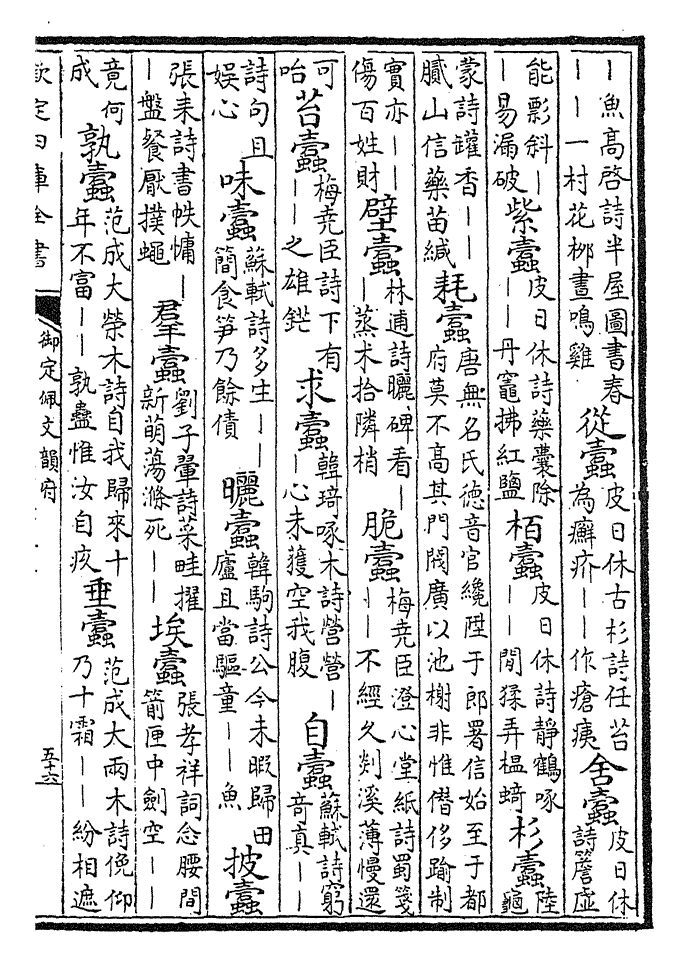 ｜魚髙啓詩半屋圖書春｜｜一村花栁晝鳴雞 從蠧 皮日休古杉詩任苔為癬疥｜｜作瘡痍 舍蠧 皮日休詩簷虛
能影斜｜｜易漏破 紫蠧 皮日休詩藥囊除｜｜丹竈拂紅鹽 栢蠧 皮日休詩靜鶴啄｜｜閒猱弄榲 杉蠧 陸龜
蒙詩罐香｜｜膩山信藥苗緘 耗蠧 唐無名氏徳音官纔陞于郎署信始至于都府莫不髙其門閥廣以池榭非惟僭侈踰制
實亦｜｜傷百姓財 壁蠧 林逋詩曬碑看｜｜蒸术拾隣梢 脆蠧 梅堯臣澄心堂紙詩蜀箋｜｜不經久剡溪薄慢還
可咍 苔蠧 梅堯臣詩下有｜｜之雄鋩 求蠧 韓琦啄木詩營營｜｜心未獲空我腹 自蠧 蘇軾詩窮竒真｜｜
詩句且娛心 味蠧 蘇軾詩多生｜｜簡食笋乃餘債 曬蠧 韓駒詩公今未暇歸田廬且當驅童｜｜魚 披蠧
張耒詩書帙慵｜｜盤餐厭撲蠅 羣蠧 劉子翬詩菜畦擢新萌蕩滌死｜｜ 埃蠧 張孝祥詞念腰間箭匣中劍空｜｜
竟何成 孰蠧 范成大榮木詩自我歸來十年不富｜｜孰蠱惟汝自疚 垂蠧 范成大兩木詩俛仰乃十霜｜｜紛相遮
欽定四庫全書
御定佩文韻府
五十六